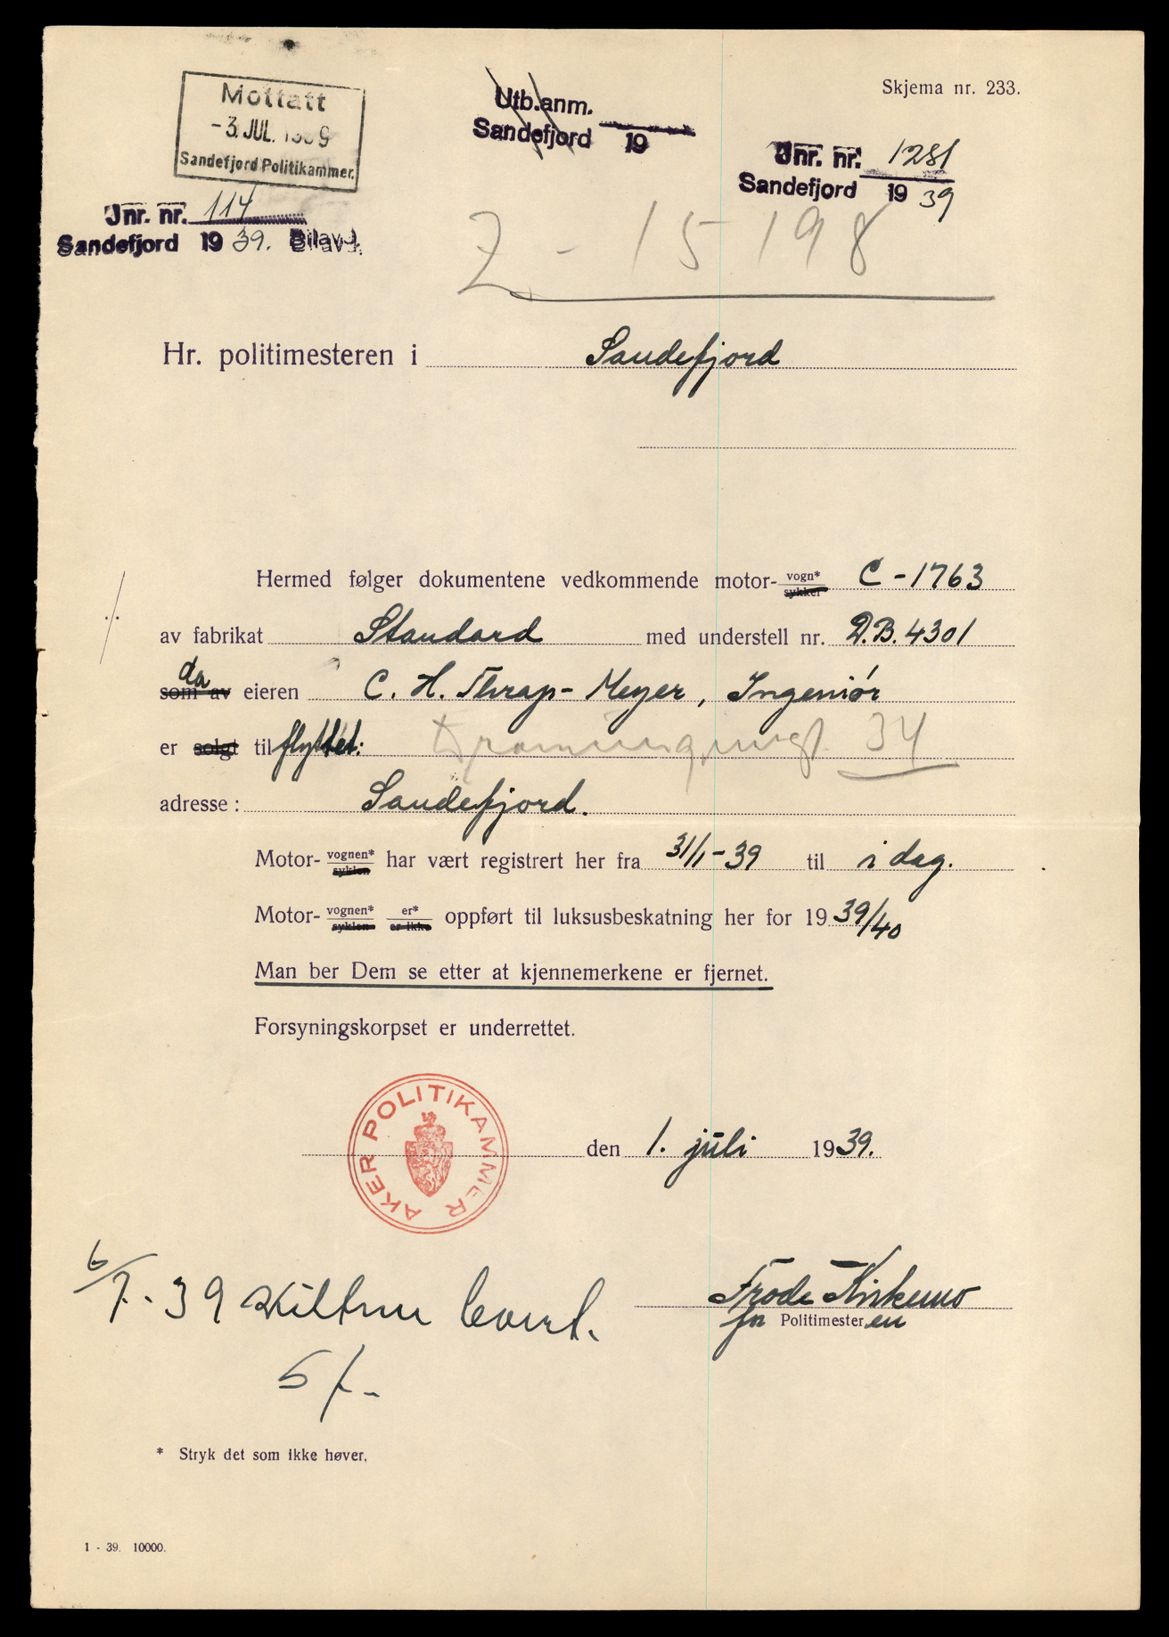 Skjema nr. 233.
Mottatt
-3. JUL. 1939
Sandefjord Politikammer.
Utb.anm.
Sandefjord 19
Jnr. nr. 1281
Sandefjord 19 39
Jnr. nr. 114
Sandefjord 19 39. Bilavd.
Z - 15198
Hr. politimesteren i Sandefjord
Hermed følger dokumentene vedkommende motor- vogn* sykkel C - 1763
av fabrikat Standard med understell nr. D.B. 4301
som av da eieren C. H. Thrap-Meyer, Ingeniør
er solgt til flyttet: 34
adresse: Sandefjord.
Motor- vognen* syklen har vært registrert her fra 31/1-39 til i dag.
Motor- vognen* syklen er* er ikke oppført til luksusbeskatning her for 19 39/40
Man ber Dem se etter at kjennemerkene er fjernet.
Forsyningskorpset er underrettet.
AKER POLITIKAMMER
den 1. juli 1939.
6/7-39 skiltene levert.
5/-
Frode Kirkemo
fn Politimesteren
* Stryk det som ikke høver.
1 - 39. 10000.